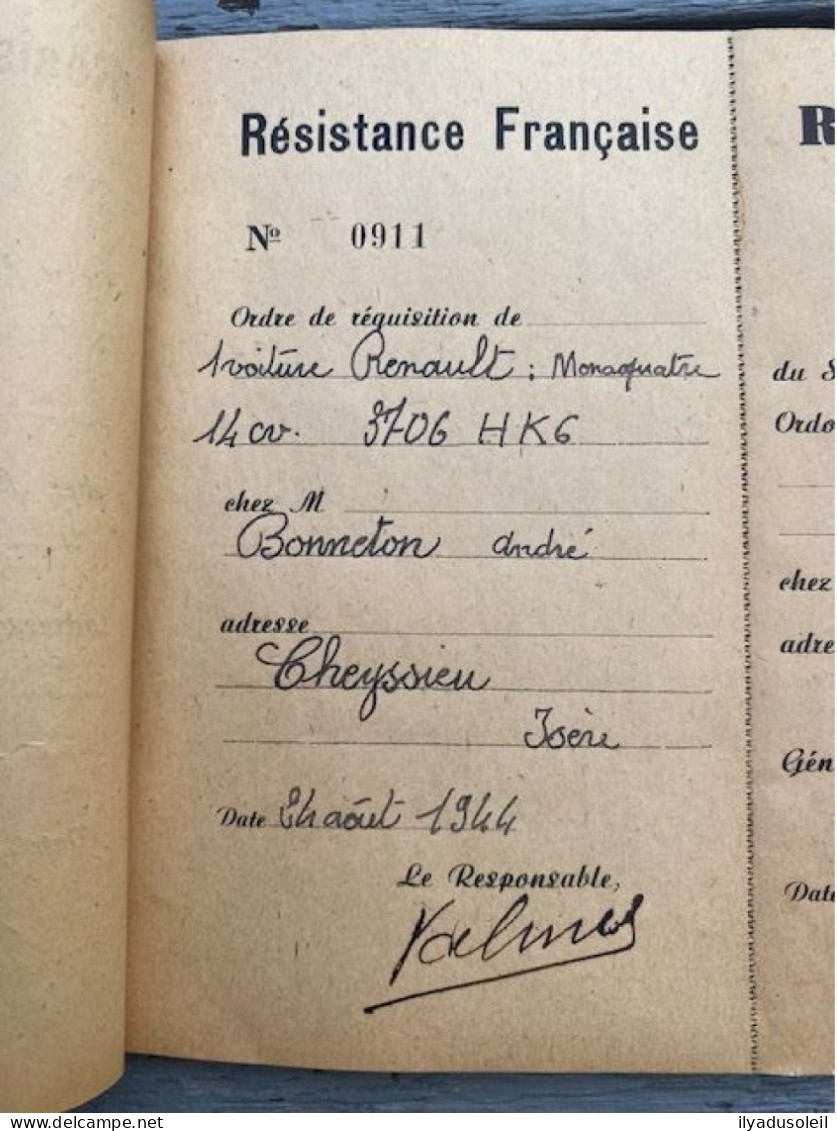 Résistance Française
Nº 0911
Ordre de réquisition de
1 voiture Renault : Monaquatre
14 cv. 3706 HK6
chez M
Bonneton andré
adresse
Cheyssieu
Isère
Date 24 août 1944
Le Responsable,
R
du S
Ordo
chez
adre
Gén
Date
delcampe.net
ilyadusoleil